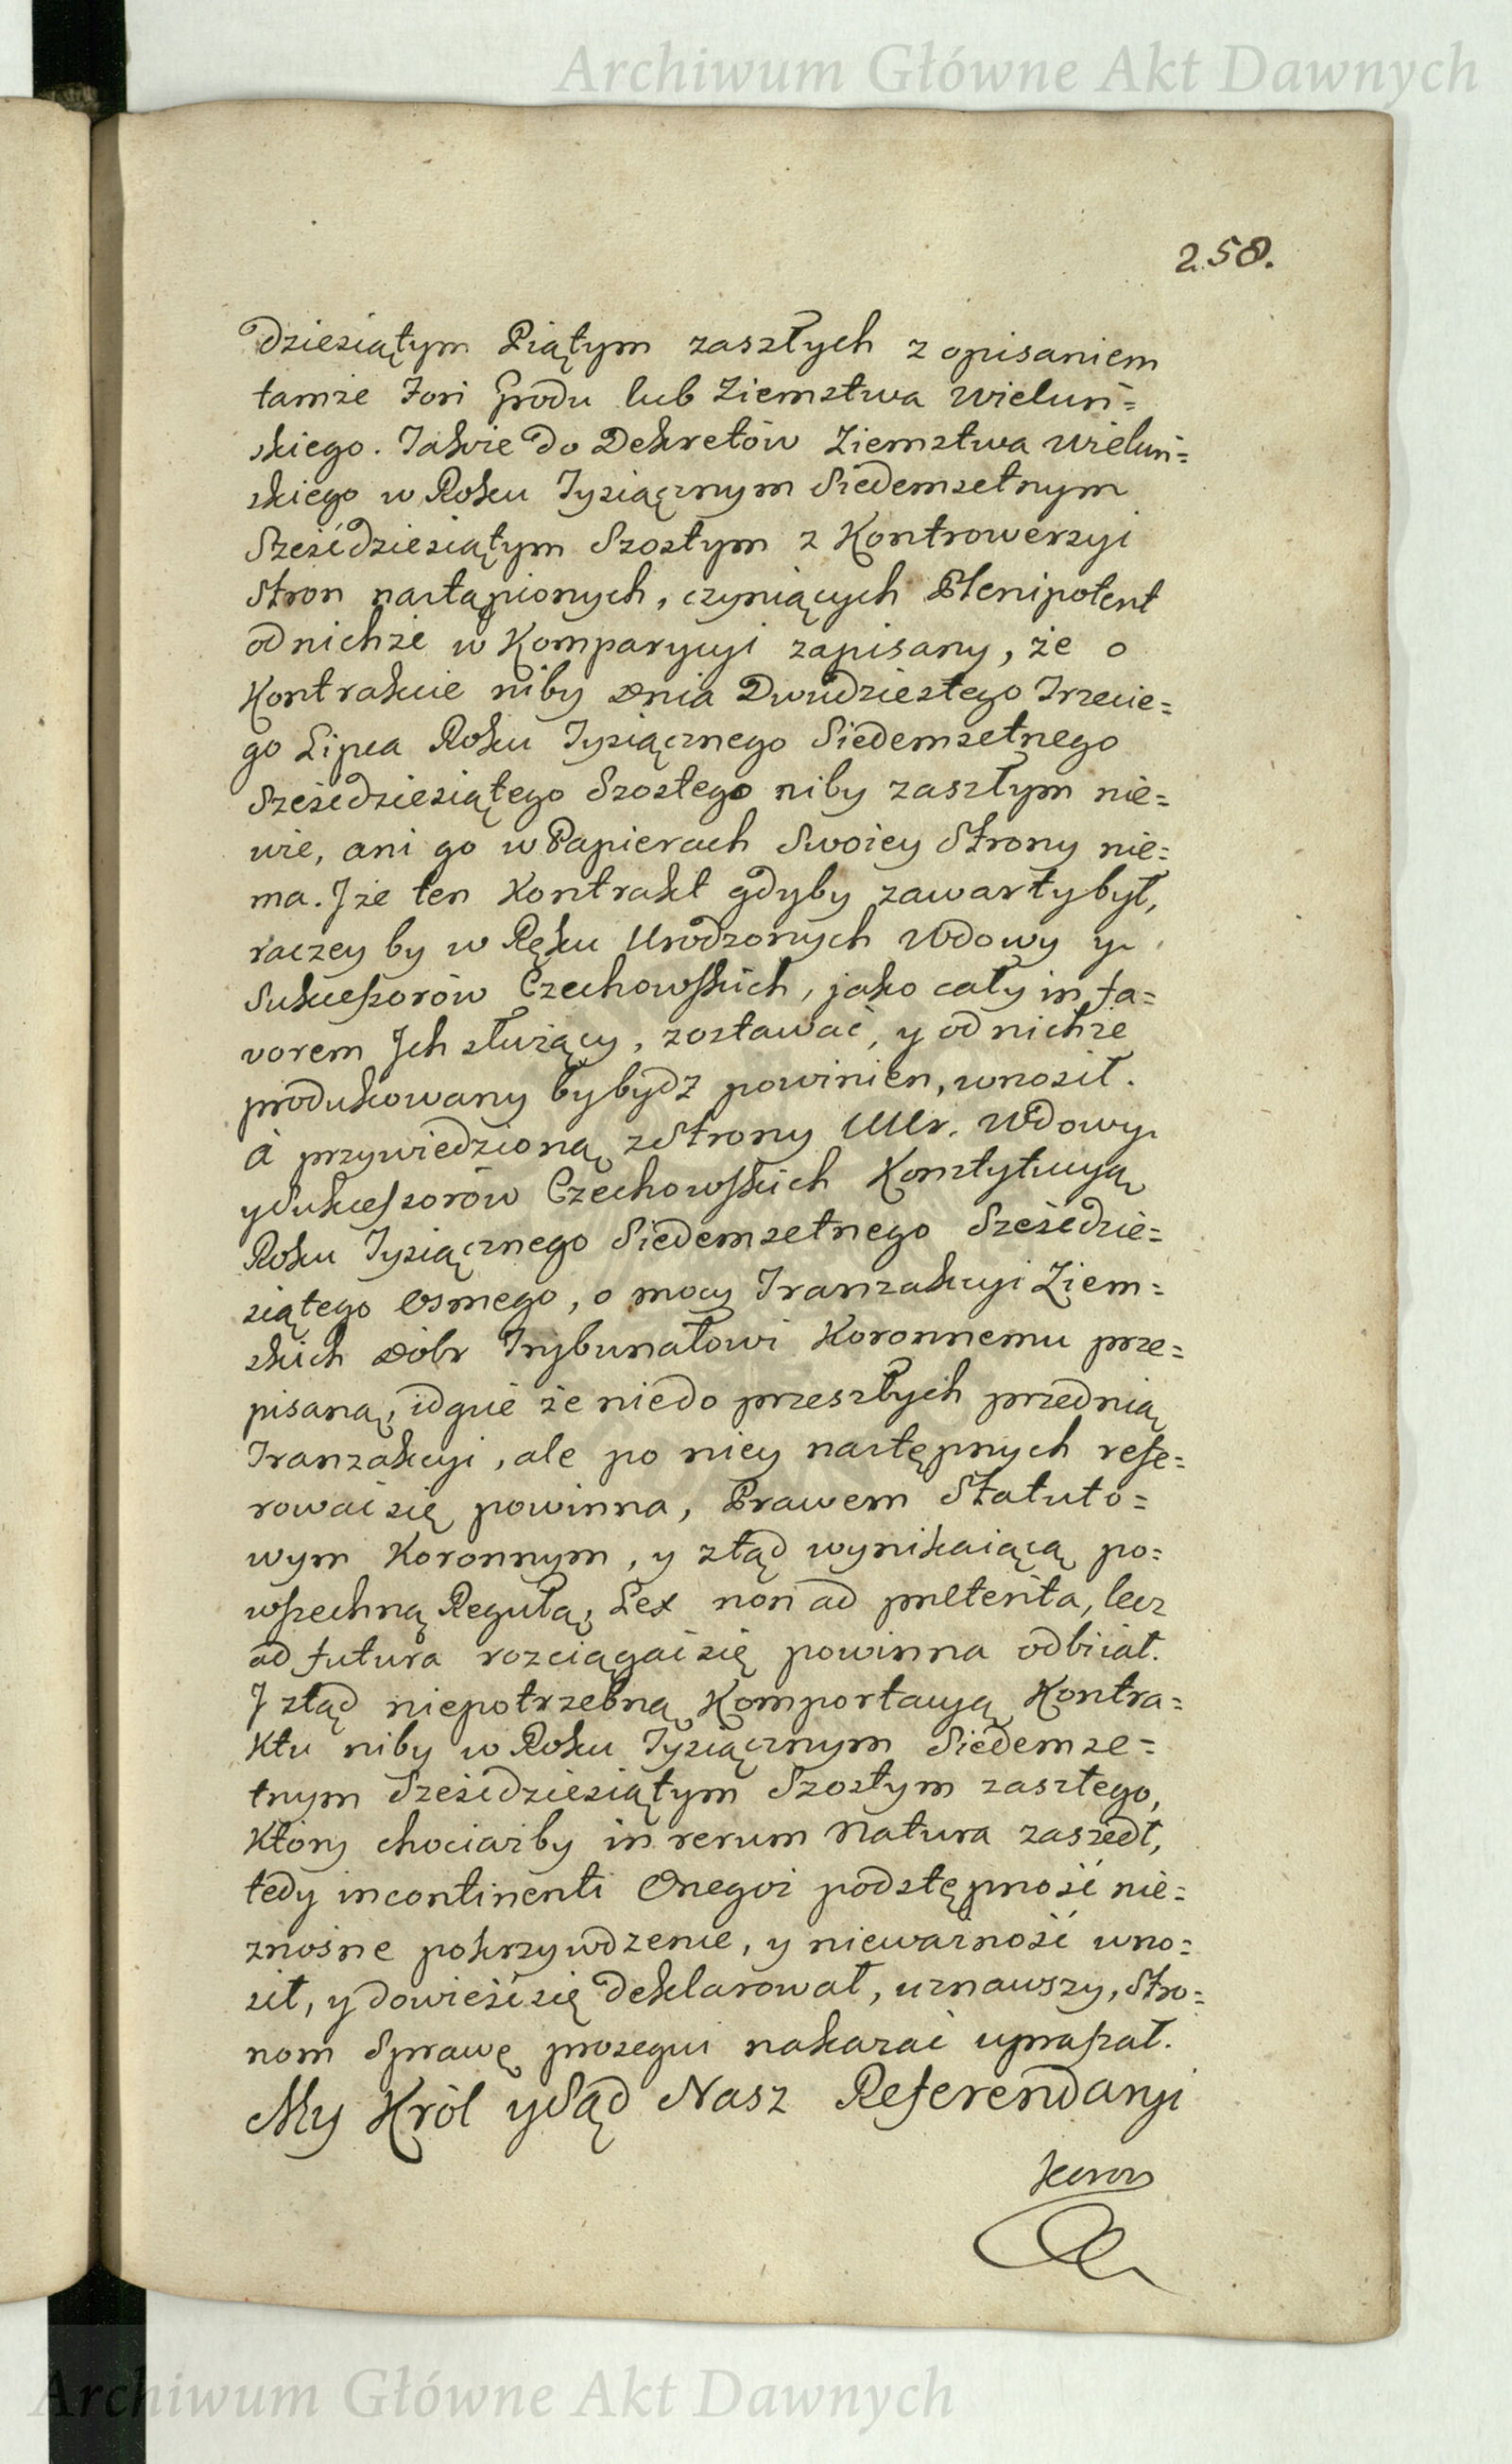 Archiwum Główne Akt Dawnych
258.
dziesiątym Piątym zaszłych z opisaniem
tamże Fori Grodu lub Ziemstwa Wieluń=
skiego. Także do Dekretów Ziemstwa Wieluń=
skiego w Roku Tysiącznym Siedemsetnym
Sześćdziesiątym Szostym z Kontrowersyi
Stron nastąpionych, czyniących Plenipotent
od nichże w Komparycyi zapisany, że o
Kontrakcie niby Dnia Dwudziestego Trzecie=
go Lipca Roku Tysiącznego Siedemsetnego
Sześćdziesiątego Szostego niby zaszłym nie=
wie, ani go w Papierach Swoiey Strony nie=
ma. I że ten Kontrakt gdyby zawarty był,
raczey by w Ręku Urodzonych Wdowy y
Sukcessorów Czechowskich, jako cały in fa=
vorem Ich służący, zostawać, y od nichże
produkowany by bydz powinien, wnosił.
à przywiedzioną z Strony UUr. Wdowy
y Sukcessorów Czechowskich Konstytucyą
Roku Tysiącznego Siedemsetnego Sześćdzie=
siątego Osmego, o mocy Tranzakcyi Ziem=
skich Dóbr Trybunałowi Koronnemu prze=
pisaną, idque że nie do przeszłych przed nią
Tranzakcyi, ale po niey następnych refe=
rować się powinna, Prawem Statuto=
wym Koronnym, y ztąd wynikaiącą po=
wszechną Regułą, Lex non ad preterita, lecz
ad futura rozciągać się powinna odbiiał.
I ztąd niepotrzebną Komportacyą Kontra=
ktu niby w Roku Tysiącznym Siedemse=
tnym Sześćdziesiątym Szostym zaszłego,
który chociażby in rerum Natura zaszedł,
tedy incontinenti Onegoż podstępność nie=
znośne pokrzywdzenie, y nieważność wno=
sił, y dowieść się deklarował, uznawszy, Stro=
nom Sprawę prosequi nakazać upraszał.
My Król y Sąd Nasz Referendaryi
Koron
Archiwum Główne Akt Dawnych